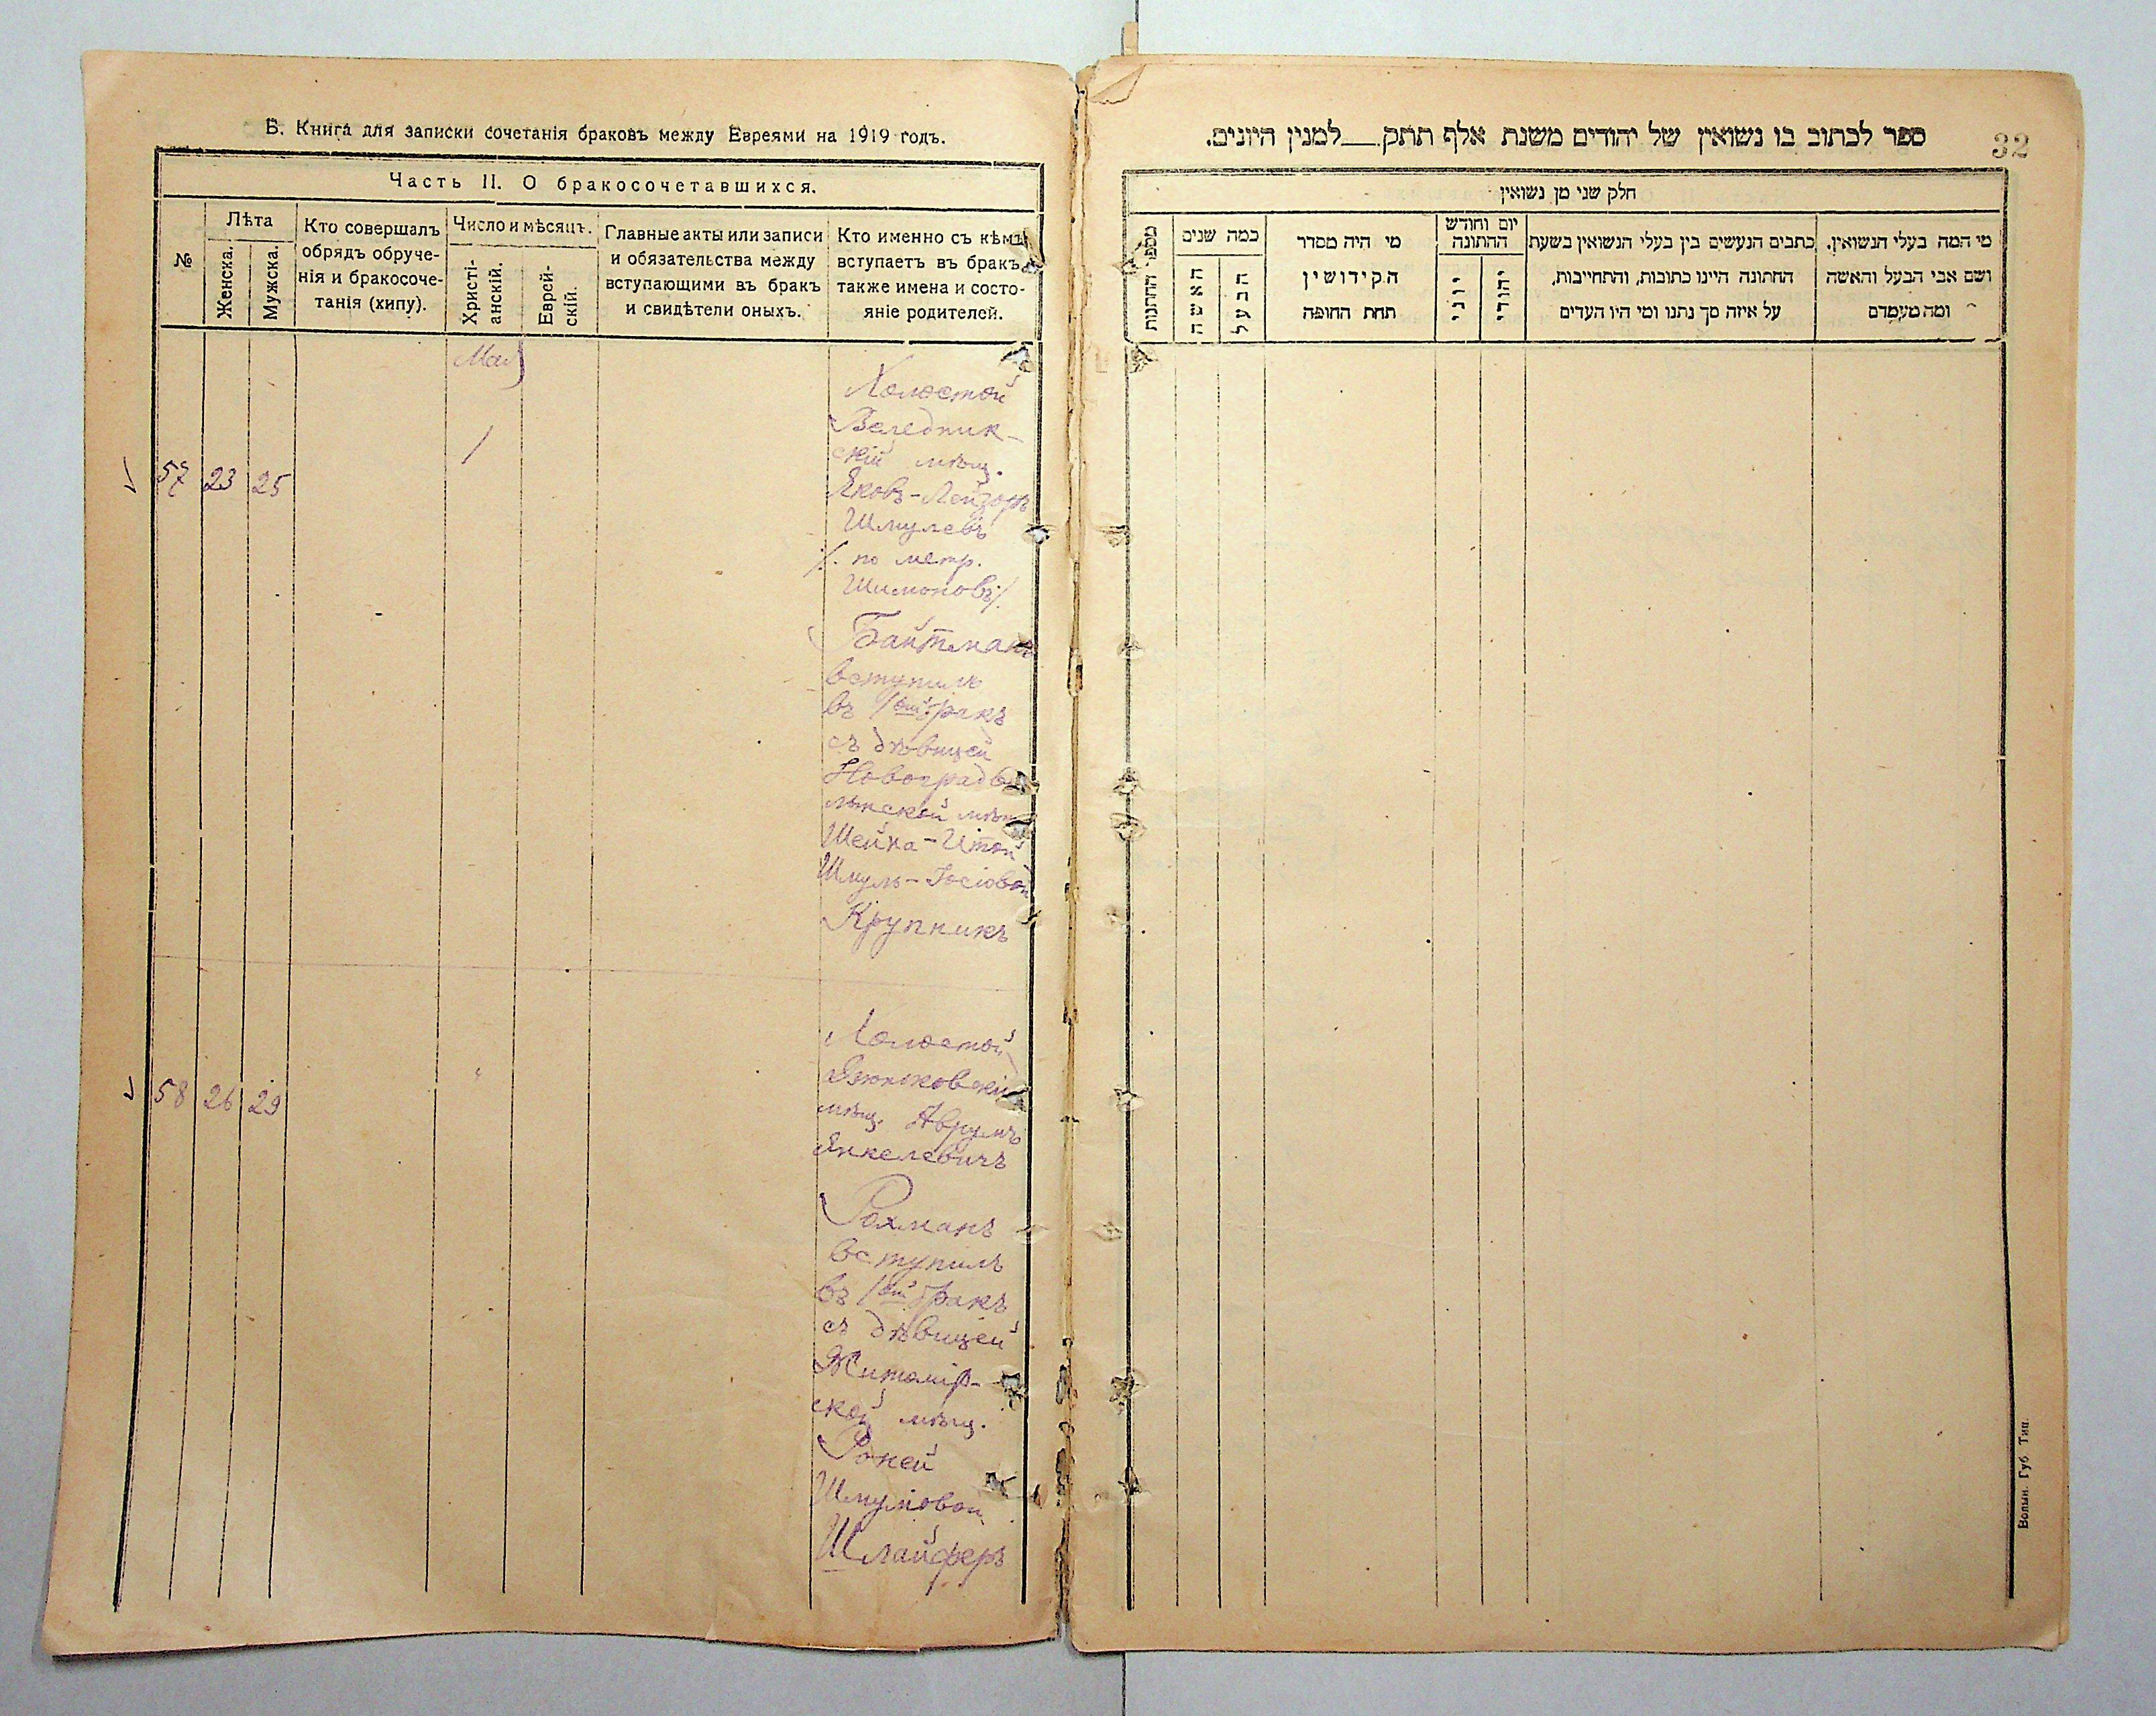 Б. Книга для записки сочетанія браковъ между Евреями на 1919 годъ.
Часть II. О бракосочетавшихся.
№
Лѣта
Женска.
Мужска.
Кто совершалъ
обрядъ обруче-
нія и бракосоче-
танія (хипу).
Число и мѣсяцъ.
Христі-
анскій.
Еврей-
скій.
Главные акты или записи
и обязательства между
вступающими въ бракъ
и свидѣтели оныхъ.
Кто именно съ кѣмъ
вступаетъ въ бракъ,
также имена и состо-
яніе родителей.
Май
57 23 25
1
Холостой
Веледник-
скій мѣщ.
Яковъ-Лейзоръ
Шмулевъ
/. по метр.
Шимоновъ/.
Байтманъ
вступилъ
въ 1ый бракъ
съ дѣвицей
Новоградв
лынской мѣщ
Шейна-Итой
Шмуль-Іосіовой
Крупникъ
58 26 29
"
Холостой
мѣщ. Аврумъ
Янкелевичъ
Рохманъ
вступилъ
въ 1ый бракъ
съ дѣвицей
Житомір-
ской мѣщ.
Рохей
Шмуловой
Шлайферъ
32
ספר לכתוב בו נשואין של יהודים משנת אלף תתק___למנין היונים.
חלק שני מן נשואין
מי המה בעלי הנשואין.
ושם אבי הבעל והאשה
ומה מעמדם
כתבים הנעשים בין בעלי הנשואין בשעת
החתונה היינו כתובות, והתחייבות,
על איזה סך נתנו ומי היו העדים
יום וחודש
החתונה
יהודי
יוני
מי היה מסדר
הקידושין
תחת החופה
כמה שנים
הבעל
האשה
מספר החתונות
Волын. Губ. Тип.